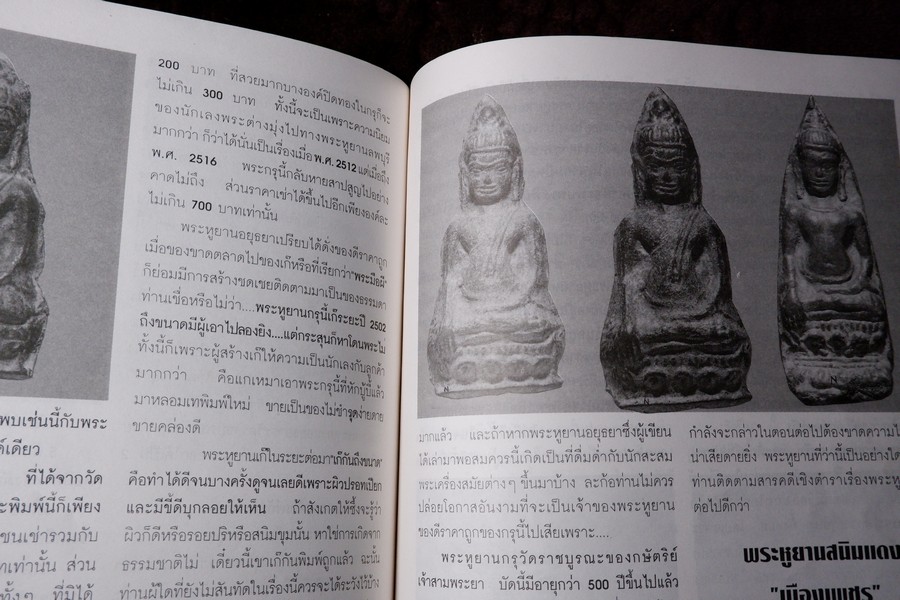 พบเช่นนี้กับพระ
ที่ได้จากวัด
ะพิมพ์นี้ก็เพียง
ชนเช่ารวมกับ
ทเท่านั้น ส่วน
200 บาท ที่สวยมากบางองค์ปิดทองในกรุก็จะ
ไม่เกิน 300 บาท ทั้งนี้จะเป็นเพราะความนิยม
ของนักเลงพระต่างมุ่งไปทางพระหูยานลพบุรี
มากกว่า ก็ว่าได้นั่นเป็นเรื่องเมื่อ พ.ศ. 2512 แต่เมื่อถึง
พ.ศ. 2516 พระกรุนี้กลับหายสาปสูญไปอย่าง
คาดไม่ถึง ส่วนราคาเช่าได้ขึ้นไปอีกเพียงองค์ละ
ไม่เกิน 700 บาทเท่านั้น
พระหูยานอยุธยาเปรียบได้ดั่งของดีราคาถูก
เมื่อของขาดตลาดไปของเก๊หรือที่เรียกว่า"พระมือผี"
ก็ย่อมมีการสร้างชดเชยติดตามมาเป็นของธรรมดา
ท่านเชื่อหรือไม่ว่า....พระหูยานกรุนี้เก๊ระยะปี 2502
ถึงขนาดมีผู้เอาไปลองยิง....แต่กระสุนก็หาโดนพระไม่
ทั้งนี้ก็เพราะผู้สร้างเก๊ให้ความเป็นนักเลงกับลูกค้า
มากกว่า คือแกเหมาเอาพระกรุนี้ที่หักบู้บี้แล้ว
มาหลอมเทพิมพ์ใหม่ ขายเป็นของไม่ชำรุดง่ายดาย
ขายคล่องดี
พระหูยานเก๊ในระยะต่อมา"เก๊กันถึงขนาด"
คือทำได้ดีจนบางครั้งดูจนเลยดีเพราะผิวปรอทเปียก
และมีขี้ดีบุกลอยให้เห็น ถ้าสังเกตให้ซึ้งจะรู้ว่า
ผิวก็ดีหรือรอยปริหรือสนิมขุมนั้น หาใช่การเกิดจาก
ธรรมชาติไม่ เดี๋ยวนี้เขาเก๊กันพิมพ์ถูกแล้ว ฉะนั้น
ท่านผู้ใดที่ยังไม่สันทัดในเรื่องนี้ควรจะได้ระวังไว้บ้าง
N
N
N
มากแล้ว และถ้าหากพระหูยานอยุธยาซึ่งผู้เขียน
ได้เล่ามาพอสมควรนี้เกิดเป็นที่ดื่มด่ำกับนักสะสม
พระเครื่องสมัยต่างๆ ขึ้นมาบ้าง ละก้อท่านไม่ควร
ปล่อยโอกาสอันงามที่จะเป็นเจ้าของพระหูยาน
ของดีราคาถูกของกรุนี้ไปเสียเพราะ....
พระหูยานกรุวัดราชบูรณะของกษัตริย์
เจ้าสามพระยา บัดนี้มีอายุกว่า 500 ปีขึ้นไปแล้ว
กำลังจะกล่าวในตอนต่อไปต้องขาดความไ
น่าเสียดายยิ่ง พระหูยานที่ว่านี้เป็นอย่างใด
ท่านติดตามสารคดีเชิงตำราเรื่องพระหู
ต่อไปดีกว่า
พระหูยานสนิมแดง
"เมืองเพชร"